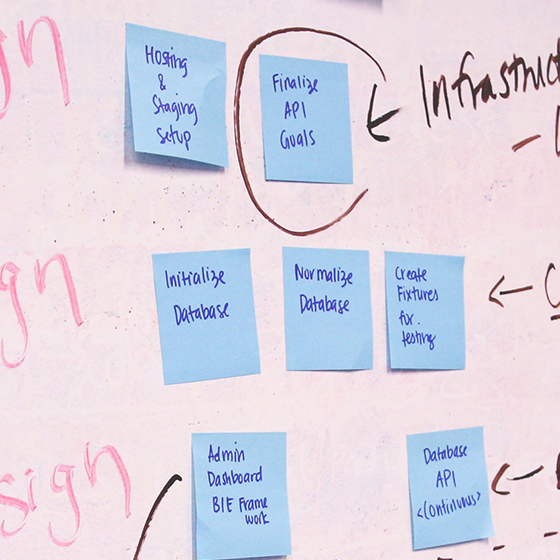 Hosting
&
Staging
Setup
Finalize
API
Goals
Initialize
Database
Normalize
Database
Create
Fixtures
for
testing
Admin
Dashboard
BIE Frame
work
Database
API
<Continuous>